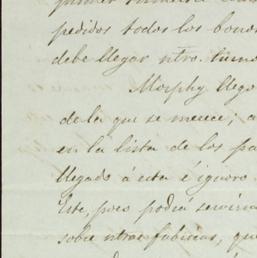 pedidos todos los bono
debe llegar ntro. turno
Morphy llego
de la que se merece; a
en la lista de los pa
llegado á esta é ignoro
Este, pues podrá servirn
sobre ntras fabricas, qu